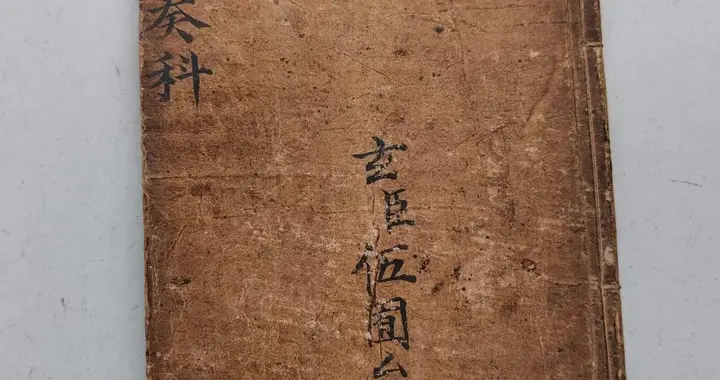 奏科
玄臣伍圓